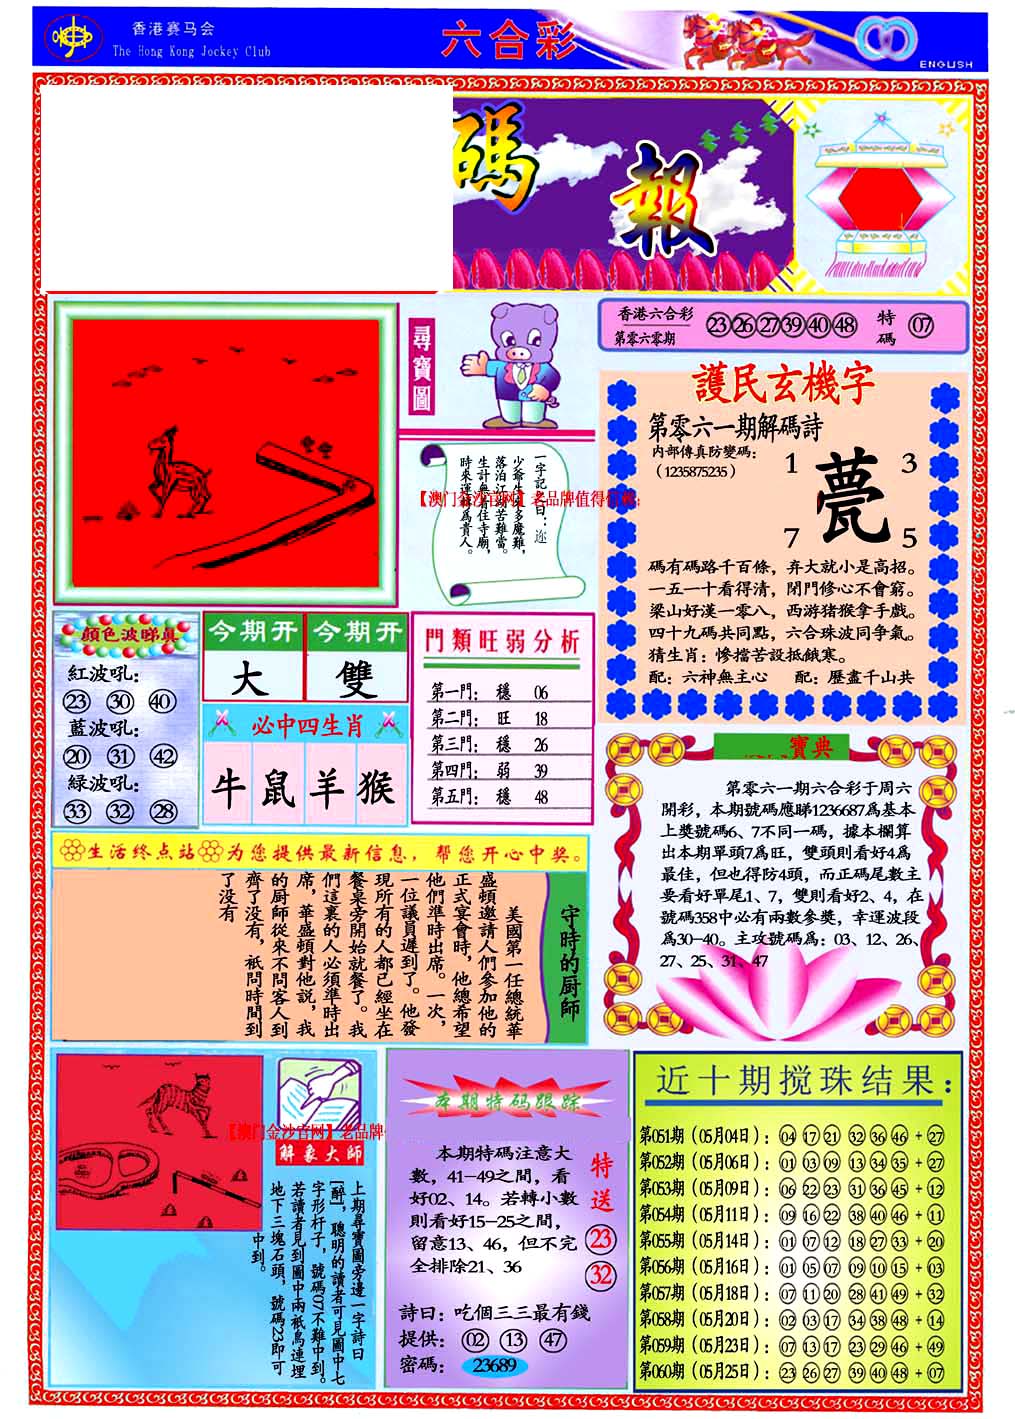 香港赛马会
The Hong Kong Jockey Club
六合彩
ENGLISH
碼報
尋寶圖
一字記之曰：迩
少爺生來多魔難，
落泊江湖苦難當。
生計無着住寺廟，
時來運轉爲貴人。
【澳门金沙官网】老品牌值得信赖
香港六合彩
第零六零期
23 26 27 39 40 48
特碼 07
護民玄機字
第零六一期解碼詩
内部傳真防變碼：
（1235875235）
1 3
甍
7 5
碼有碼路千百條，弃大就小是高招。
一五一十看得清，閉門修心不會窮。
梁山好漢一零八，西游猪猴拿手戲。
四十九碼共同點，六合珠波同争氣。
猜生肖：慘擋苦設抵餓寒。
配：六神無主心 配：歷盡千山共
顏色波睇真
紅波吼：
23 30 40
藍波吼：
20 31 42
緑波吼：
33 32 28
今期开 今期开
大 雙
必中四生肖
牛 鼠 羊 猴
門類旺弱分析
第一門： 穩 06
第二門： 旺 18
第三門： 穩 26
第四門： 弱 39
第五門： 穩 48
寶典
第零六一期六合彩于周六
開彩，本期號碼應睇1236687爲基本
上獎號碼6、7不同一碼，據本欄算
出本期單頭7爲旺，雙頭則看好4爲
最佳，但也得防4頭，而正碼尾數主
要看好單尾1、7，雙則看好2、4，在
號碼358中必有兩數参獎，幸運波段
爲30-40。主攻號碼爲：03、12、26、
27、25、31、47
生活终点站 为您提供最新信息，帮您开心中奖。
守時的厨師
美國第一任總統華
盛頓邀請人們參加他的
正式宴會時，他總希望
他們準時出席。一次，
一位議員遲到了。他發
現所有的人都已經坐在
餐桌旁開始就餐了。我
們這裏的人必須準時出
席，華盛頓對他説，我
的厨師從來不問客人到
齊了没有，衹問時間到
了没有
【澳门金沙官网】老品牌
解象大師
上期尋寶圖旁邊一字詩曰
[醉]，聰明的讀者可見圖中七
字形杆子，號碼07不難中到。
若讀者見到圖中兩衹鳥連埋
地下三塊石頭，號碼23即可
中到。
本期特码跟踪
本期特碼注意大
數，41-49之間，看
好02、14。若轉小數
則看好15-25之間，
留意13、46，但不完
全排除21、36
特送
23
32
詩曰：吃個三三最有錢
提供： 02 13 47
密碼： 23689
近十期搅珠结果：
第051期（05月04日）：04 17 21 32 36 46 + 27
第052期（05月06日）：01 03 09 13 34 35 + 27
第053期（05月09日）：06 22 23 31 36 45 + 12
第054期（05月11日）：09 16 22 38 40 46 + 11
第055期（05月14日）：01 07 12 18 27 33 + 20
第056期（05月16日）：01 05 07 09 10 15 + 03
第057期（05月18日）：07 11 20 28 41 49 + 32
第058期（05月20日）：02 03 17 34 38 48 + 14
第059期（05月23日）：07 13 17 23 29 46 + 49
第060期（05月25日）：23 26 27 39 40 48 + 07